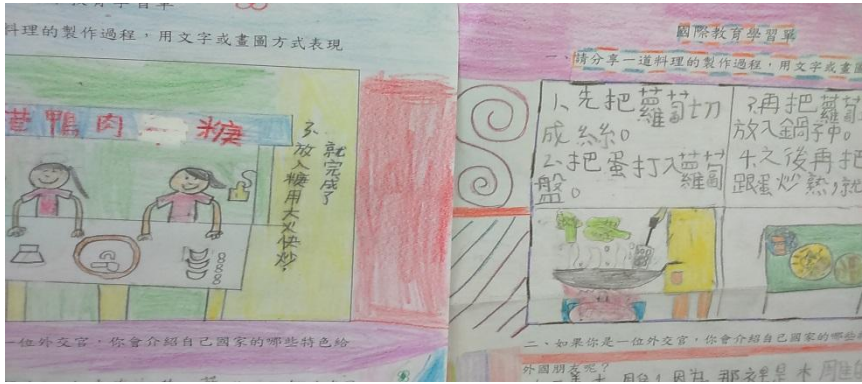 料理的製作過程，用文字或畫圖方式表現
鴨肉
糖
3.放入糖用大火快炒，
就完成了
一位外交官，你會介紹自己國家的哪些特色給
國際教育學習單
一、請分享一道料理的製作過程，用文字或畫圖
1.先把蘿蔔切
成絲絲。
2.把蛋打入蘿蔔
盤。
3.再把蘿蔔
放入鍋子中。
4.之後再把
跟蛋炒熟，就
二、如果你是一位外交官，你會介紹自己國家的哪些
外國朋友呢？